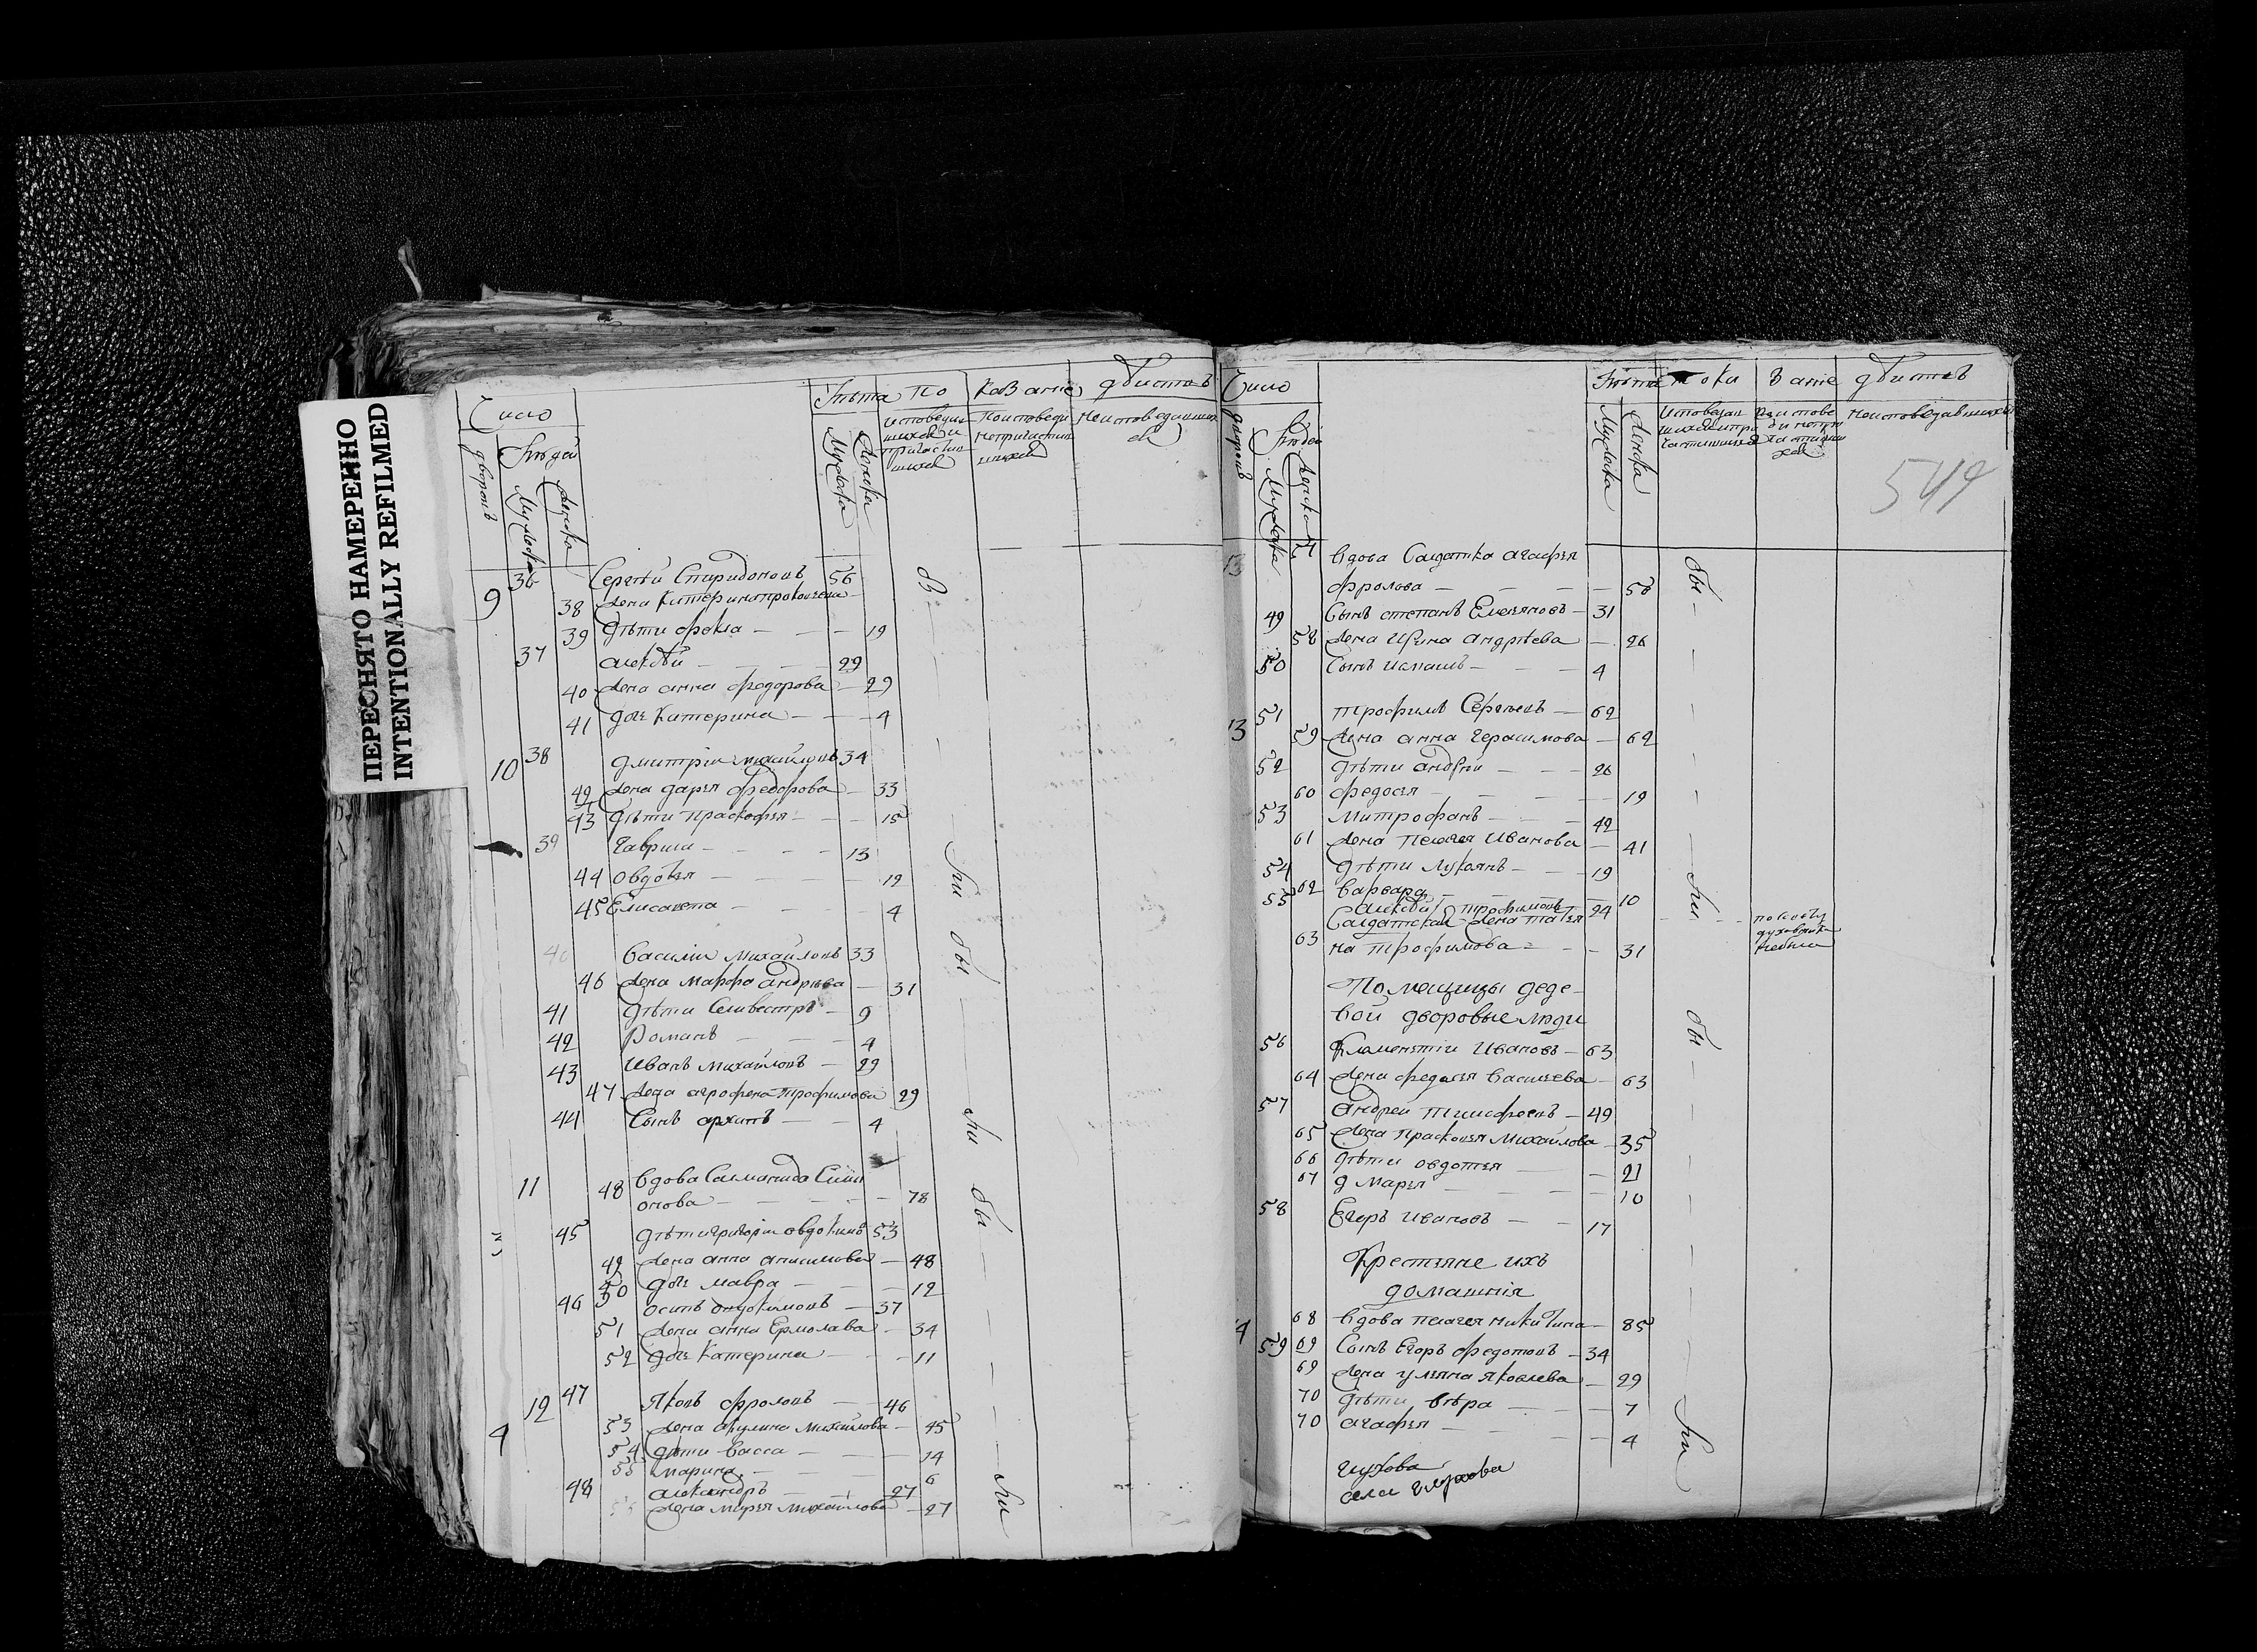 ПЕРЕСНЯТО НАМЕРЕННО
INTENTIONALLY REFILMED
Число
Лѣта
По
казание
дѣиствъ
дворовъ
Людей
Мужеска
Женска
Мужеска
Женска
Исповедав
шихся и
причастив
шихся
Поисповеди
непричастив
шихся
Неисповедавших
ся
9 36 Сергѣй Спиридоновъ 56
38 Жена Катерина прокофьева
39 Дѣти фекла 19
37 алексѣй 29
40 Жена анна федорова 29
41 дочь Катерина 4
10 38 дмитрии михайловъ 34
42 Жена дарья федорова 33
43 Дѣти праскофья 15
39 гаврила 13
44 овдотья 12
45 Елисавета 4
40 Василии михайловъ 33
46 Жена марфа андрѣева 31
41 Дѣти Селивестръ 9
42 Романъ 4
43 Иванъ михайловъ 29
47 Жена агрофена трофимова 29
44 Сынъ архипъ 4
11 48 Вдова
онова 78
45 Дѣти григории овдокимъ 53
49 Жена анна анисимова 48
50 дочь мавра 12
46 осипъ овдокимовъ 37
51 Жена анна Ермолава 34
52 дочь Катерина 11
12 47 Яковъ фроловъ 46
53 Жена акулина михайлова 45
54 Дѣти Васса 14
55 марина 6
48 александръ 27
56 Жена марья михайлова 27
бы
ли
бы
ли
бы
ли
Число
Лѣта
поки
зание
дѣиств
дворовъ
Людей
Мужеска
Женска
Мужеска
Женска
Исповедав
шихся и при
частившихся
Поиспове
ди непри
частивши
хся
Неисповедавшихся
549
13 57 вдова Салдатка агафья
фролова 58
49 Сынъ степанъ Емельяновъ 31
58 Жена Ирина андрѣева 26
50 Сынъ игнашъ 4
13 51 трофимъ Сергѣевъ 62
59 Жена анна герасимова 62
52 Дѣти андрѣй 26
60 федосья 19
53 митрофанъ 42
61 Жена пелагея Иванова 41
54 Дѣти лукьянъ 19
62 варвара 10
55 алексѣй трофимовъ 24
Салдатская Жена татья
63 на трофимова 31
посовѣту
духовника
Помещицы деде-
вой дворовые люди
56 Клементии Ивановъ 63
64 Жена федосья Васильева 63
57 андреи тимофеевъ 49
65 Жена прасковья михайлова 35
66 Дѣти овдотья 21
67 д марья 10
58 Егоръ Ивановъ 17
Крестьяне ихъ
домашнія
4 68 вдова пелагея никитина 85
59 69 Сынъ Егоръ федотовъ 34
69 Жена ульяна яковлева 29
70 Дѣти вѣра 7
70 агафья 4
глухова
села глухова
бы
ли
бы
ли